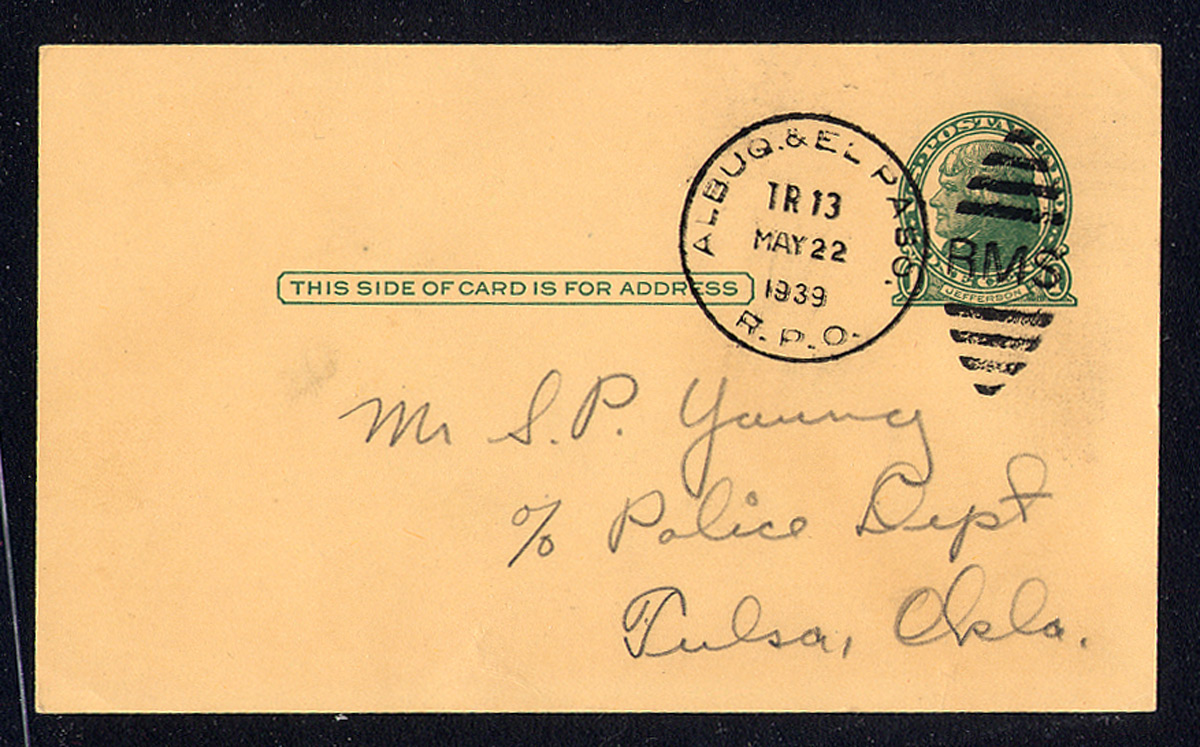 U.S. POSTAL CARD
ALBUQ. & EL PASO.
TR 13
MAY 22
1939
R.P.O.
RMS
JEFFERSON
THIS SIDE OF CARD IS FOR ADDRESS
Mr S. P. Young
% Police Dept
Tulsa, Okla.